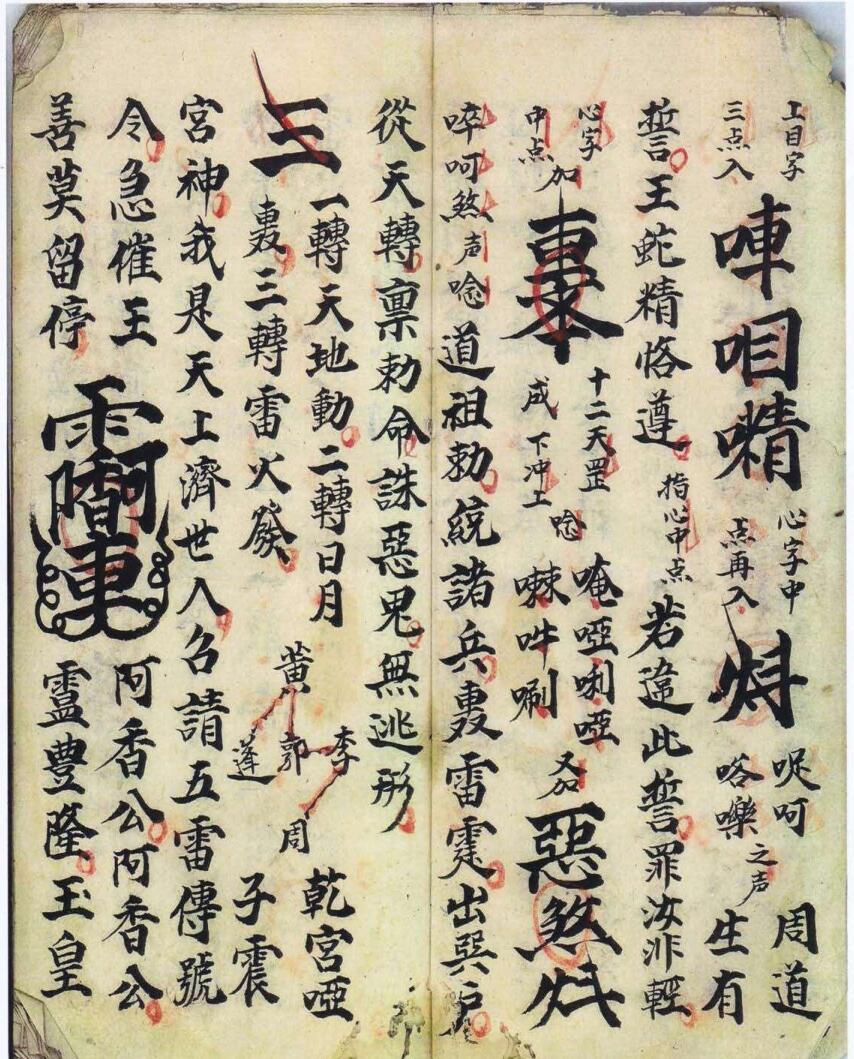 上目字 三点入 𠹌 咱 㗌 心字中 点再入 㶥 呢呵 嗒㗰 之声 周道 生有
誓王蛇精恪遵 指心中点 若違此誓罪汝非輕
心字 中点 加 十二天罡 成下冲上 唸 唵啞唎啞 㖨吽唰 又加 惡煞
啐呵煞声唸道祖勅統諸兵轟雷霆出巽户
從天轉稟勅命誅惡鬼無逃形
三 一轉天地動二轉日月
轟三轉雷火發 黄 李 郭 蓬 周 乾宮啞 子震
宮神我是天上濟世人召請五雷傳號
令急催王 阿香公阿香公
善莫留停 靈豊隆玉皇